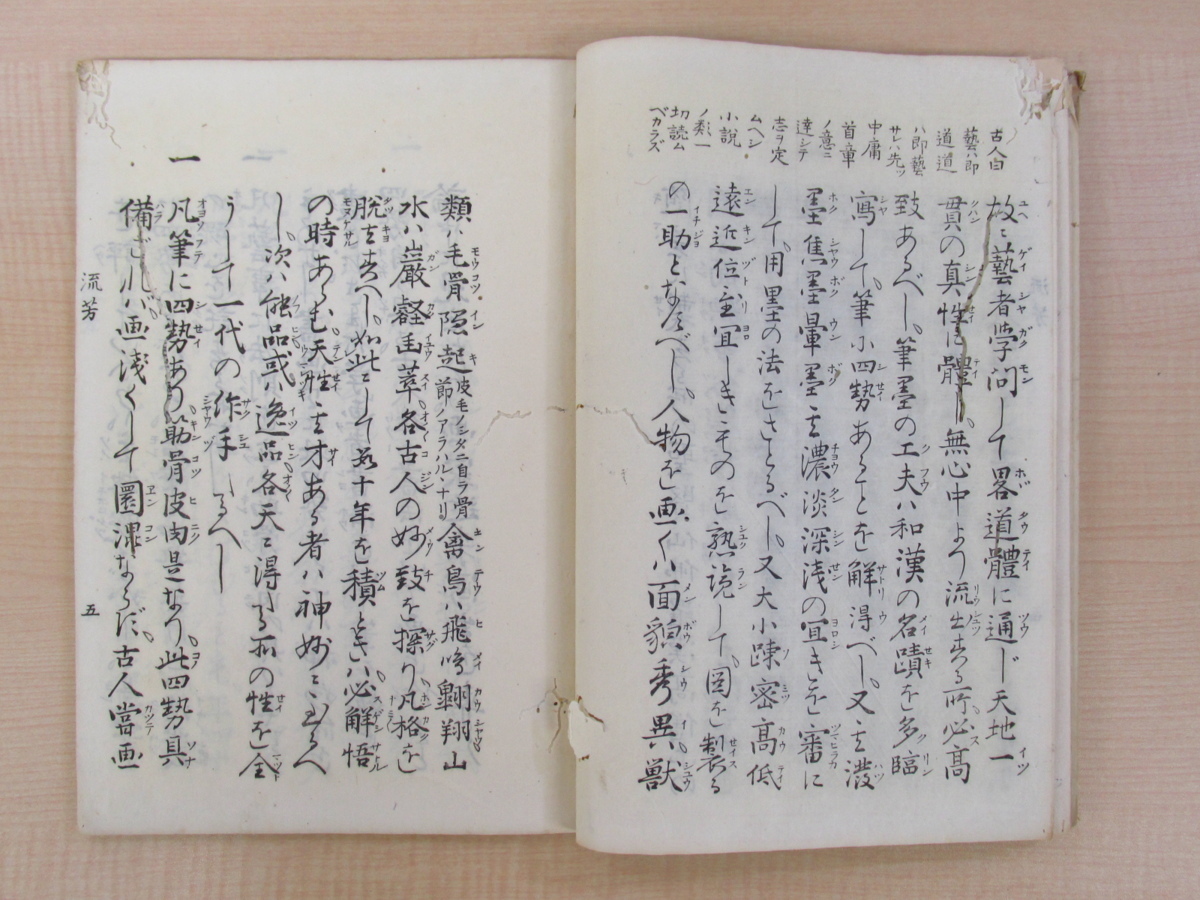 古人曰
藝ハ即
道道
ハ即藝
サレハ先ツ
中庸
首章
ノ意ニ
達シテ
志ヲ定
ムヘシ
小説
ノ類一
切読ム
ベカラズ
故ニ藝者学問して畧道體に通じ天地一
貫の真性に體し無心中より流出する所必高
致あるべし筆墨の工夫ハ和漢の名蹟を多臨
寫して筆に四勢あることを解得べし又其潑
墨焦墨暈墨其濃淡深浅の宜きを審に
して用墨の法をさとるべし又大小疎密高低
遠近位置宜しきものを熟覧して図を製る
の一助となすべし人物を画くハ面貌秀異獣
類ハ毛骨隠起皮毛ノシタニ自ラ骨節ノアラハルヽナリ禽鳥ハ飛鳴翺翔山
水ハ巌壑幽萃各古人の妙致を探り凡格を
脱去すべし如此にして数十年を積ときハ必解悟
の時あるも天性其才ある者ハ神妙に至るべ
し次ハ能品或ハ逸品各天に得たる所の性を全
うして一代の作手たるべし
一
凡筆に四勢あり筋骨皮肉是なり此四勢具
備ざれバ画浅くして圏渾ならだ古人嘗画
流芳
五